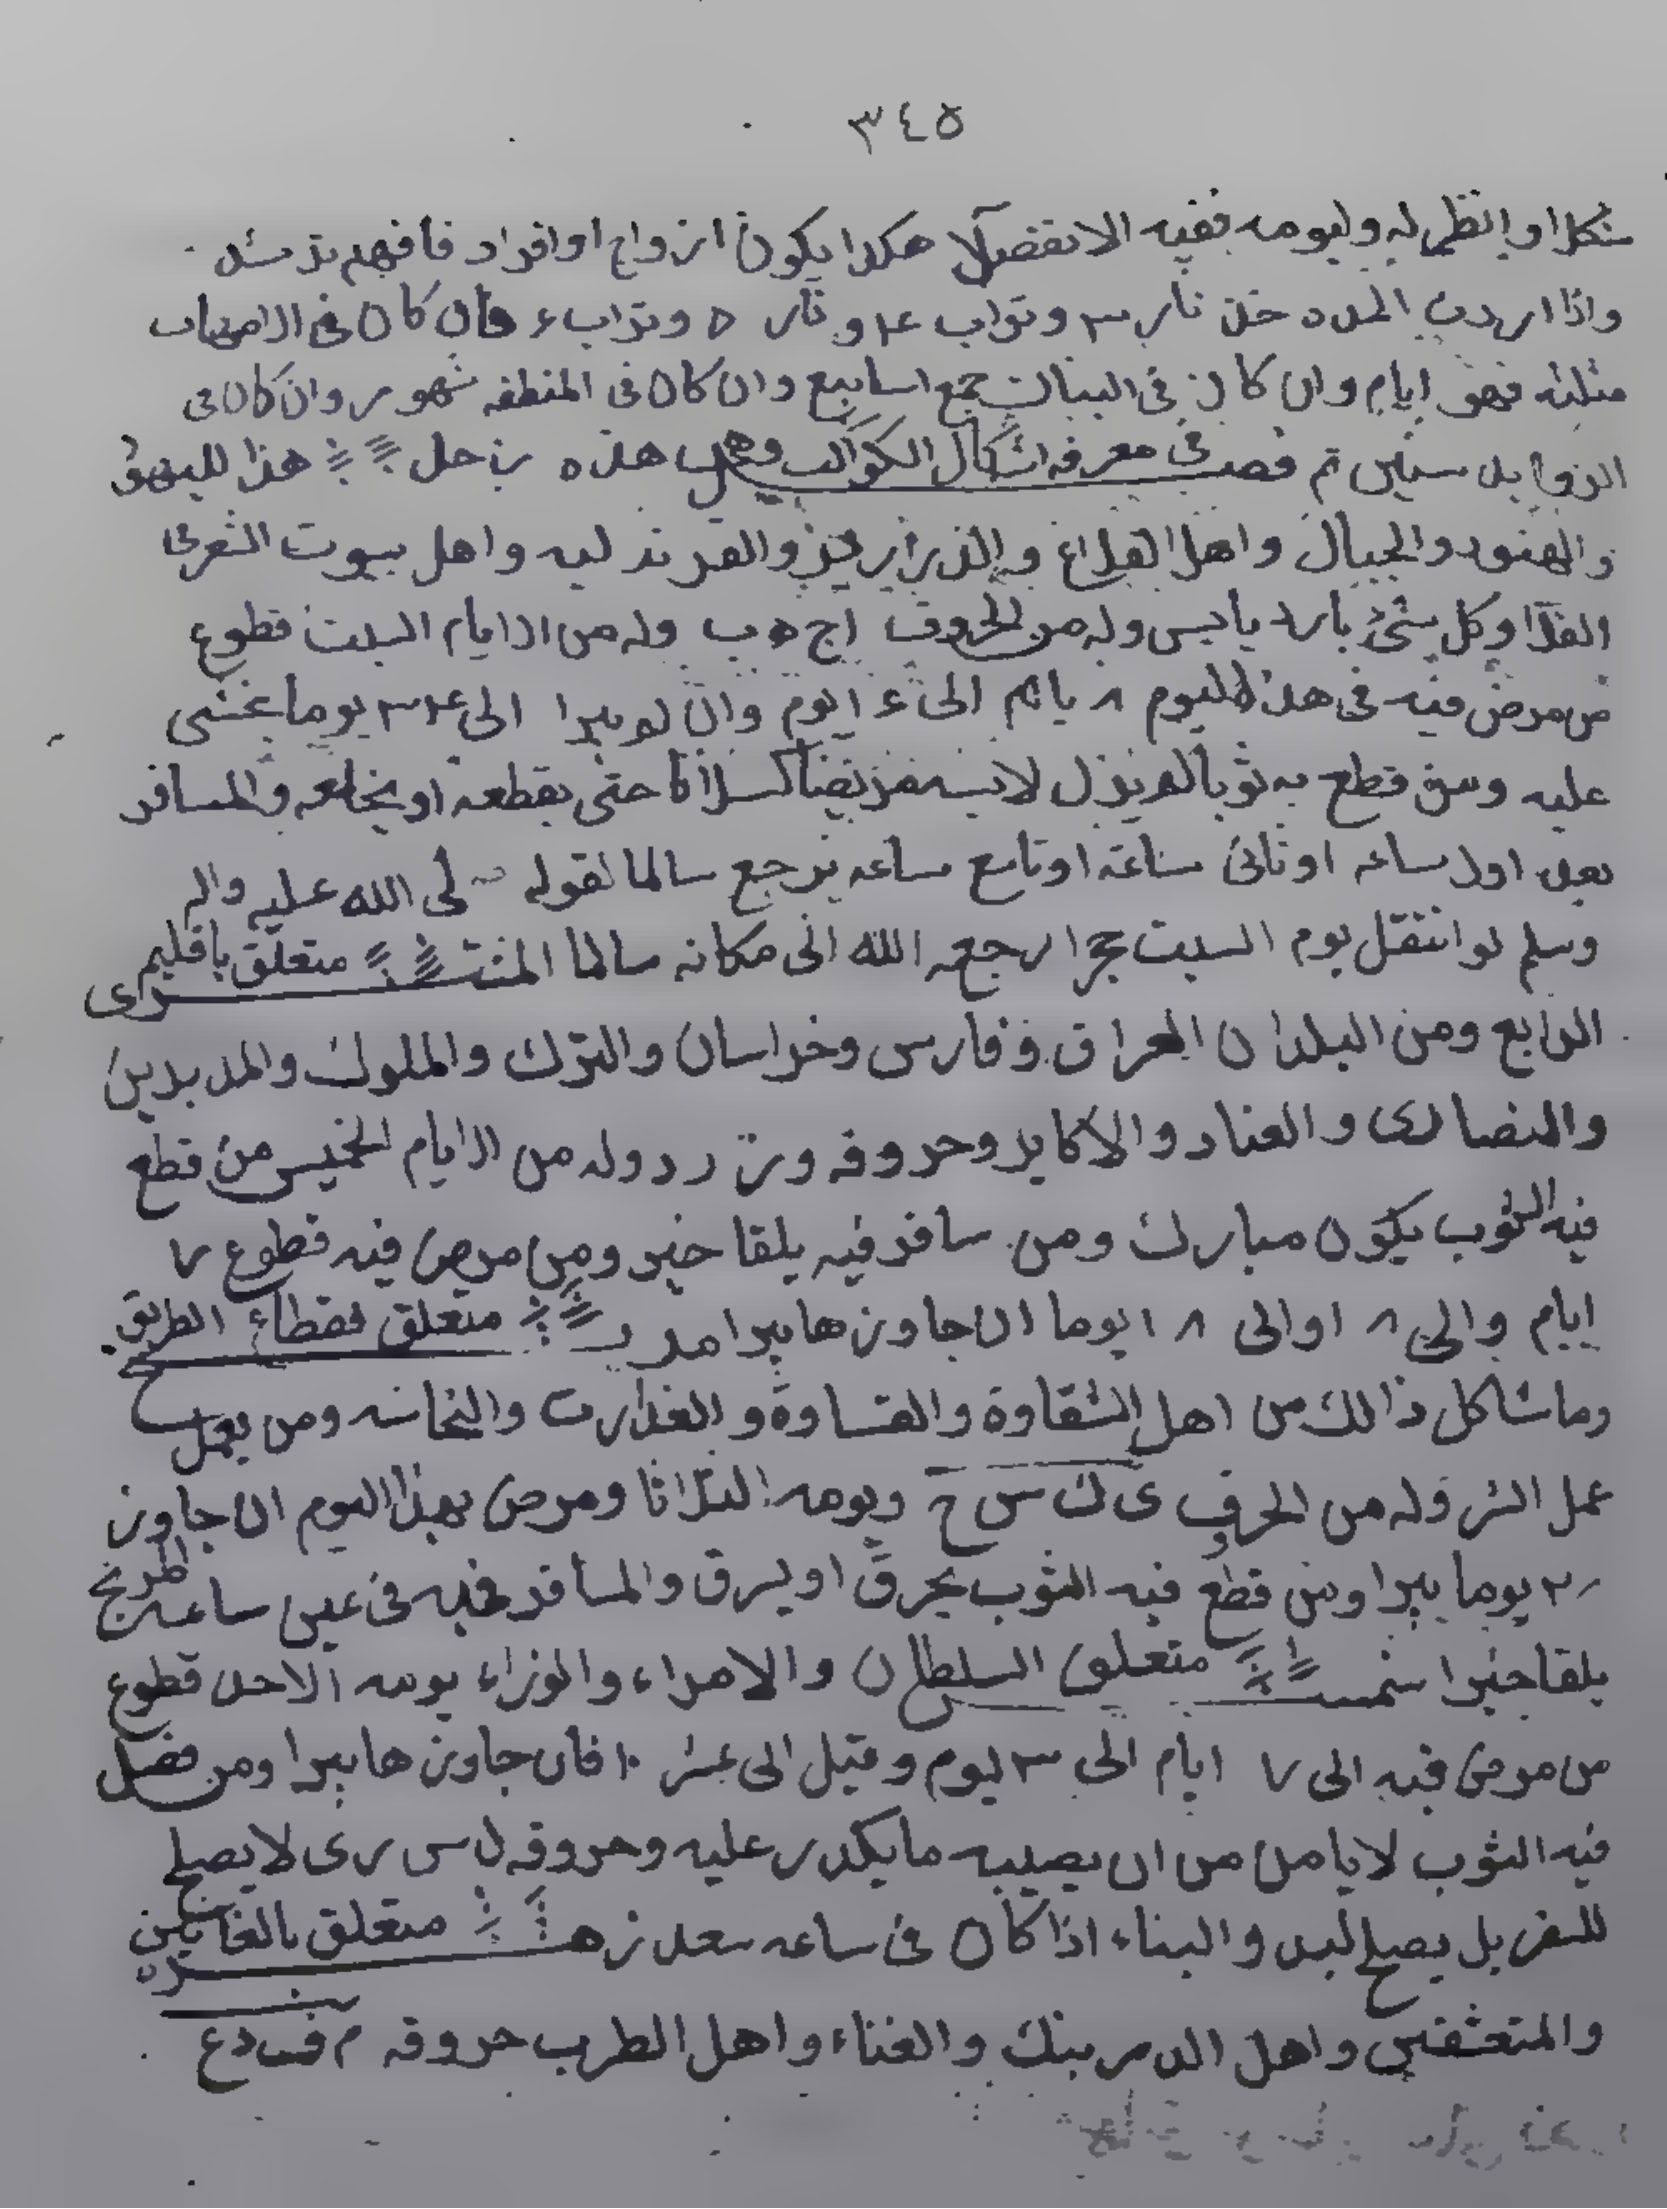 ٣٤٥
شكلا او انظر له وليومه ففيه الانفصال هكذا يكون ازواج او افراد فافهم ترشد
واذا اردت المده خذ نار ٣ وتراب ٢٤ و نار ٥ وتراب ٤ فان كان في الامهات
مثلثه فهو ايام وان كان في البنات جمع اسابيع وان كان في المنطقه شهور وان كان في
الزوايد سنين تم فصل في معرفه اشكال الكواكب وهي هذه زحل هذا لليهود
والهنود والجبال واهل القلاع واهل بيوت الشعر في
الفلا وكل شئ بارد يابس وله من الحروف اج ه ب وله من الايام السبت قطوع
من مرض فيه في هذا اليوم ٨ يام الى ٤ ايوم وان لو يبرا الى ٢٤ ٣ يوما يخشى
عليه ومن قطع به ثوبا لم يزل لابسه مريضا كسلانا حتى يقطعه او يخلعه والمسافر
بعد اول ساعه او ثاني ساعة او تاسع ساعه يرجع سالما لقوله صلى الله عليه واله
وسلم لو انتقل يوم السبت حجرا رجعه الله الى مكانه سالما المشترى متعلق باقليم
الرابع ومن البلدان العراق وفارس وخراسان والترك والملوك والمدبرين
والنصارى والعناد والاكابر وحروفه و ز ر د وله من الايام الخميس من قطع
فيه الثوب يكون مبارك ومن سافر فيه يلقا خير ومن مرض فيه قطوع ٧
ايام والى ٨ اوالى ١٨ يوما ان جاوزها يبرا مريخ متعلق بقطاع الطريق
وما شاكل ذالك من اهل الشقاوة والقساوة والغدارت والنحاسه ومن يعمل
عمل الشر وله من الحرف ى ك س ح ويومه الثلاثا ومرض بهذا اليوم ان جاوز
٢٠ يوما يبرا ومن قطع فيه الثوب يحرق او يسرق والمسافر فيه في غير ساعه المريخ
يلقا خيرا شمس متعلق السلطان والامراء والوزراء يومه الاحد قطوع
من مرض فيه الى ٧ ايام الى ٣ ايوم وقيل الى عشر ١٠ فان جاوزها يبرا ومن فصل
فيه الثوب لا يامن من ان يصيبه ما يكدر عليه وحروفه ل س ر ى لا يصلح
للسفر بل يصلح لبس والبناء اذا كان في ساعه سعد زهره متعلق بالغايبين
والمتعشقين واهل الدمربنك والغناء واهل الطرب حروفه م ف د ع